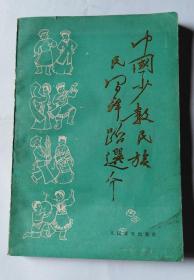 中國少数民族
民间舞蹈選介
人民音乐出版社